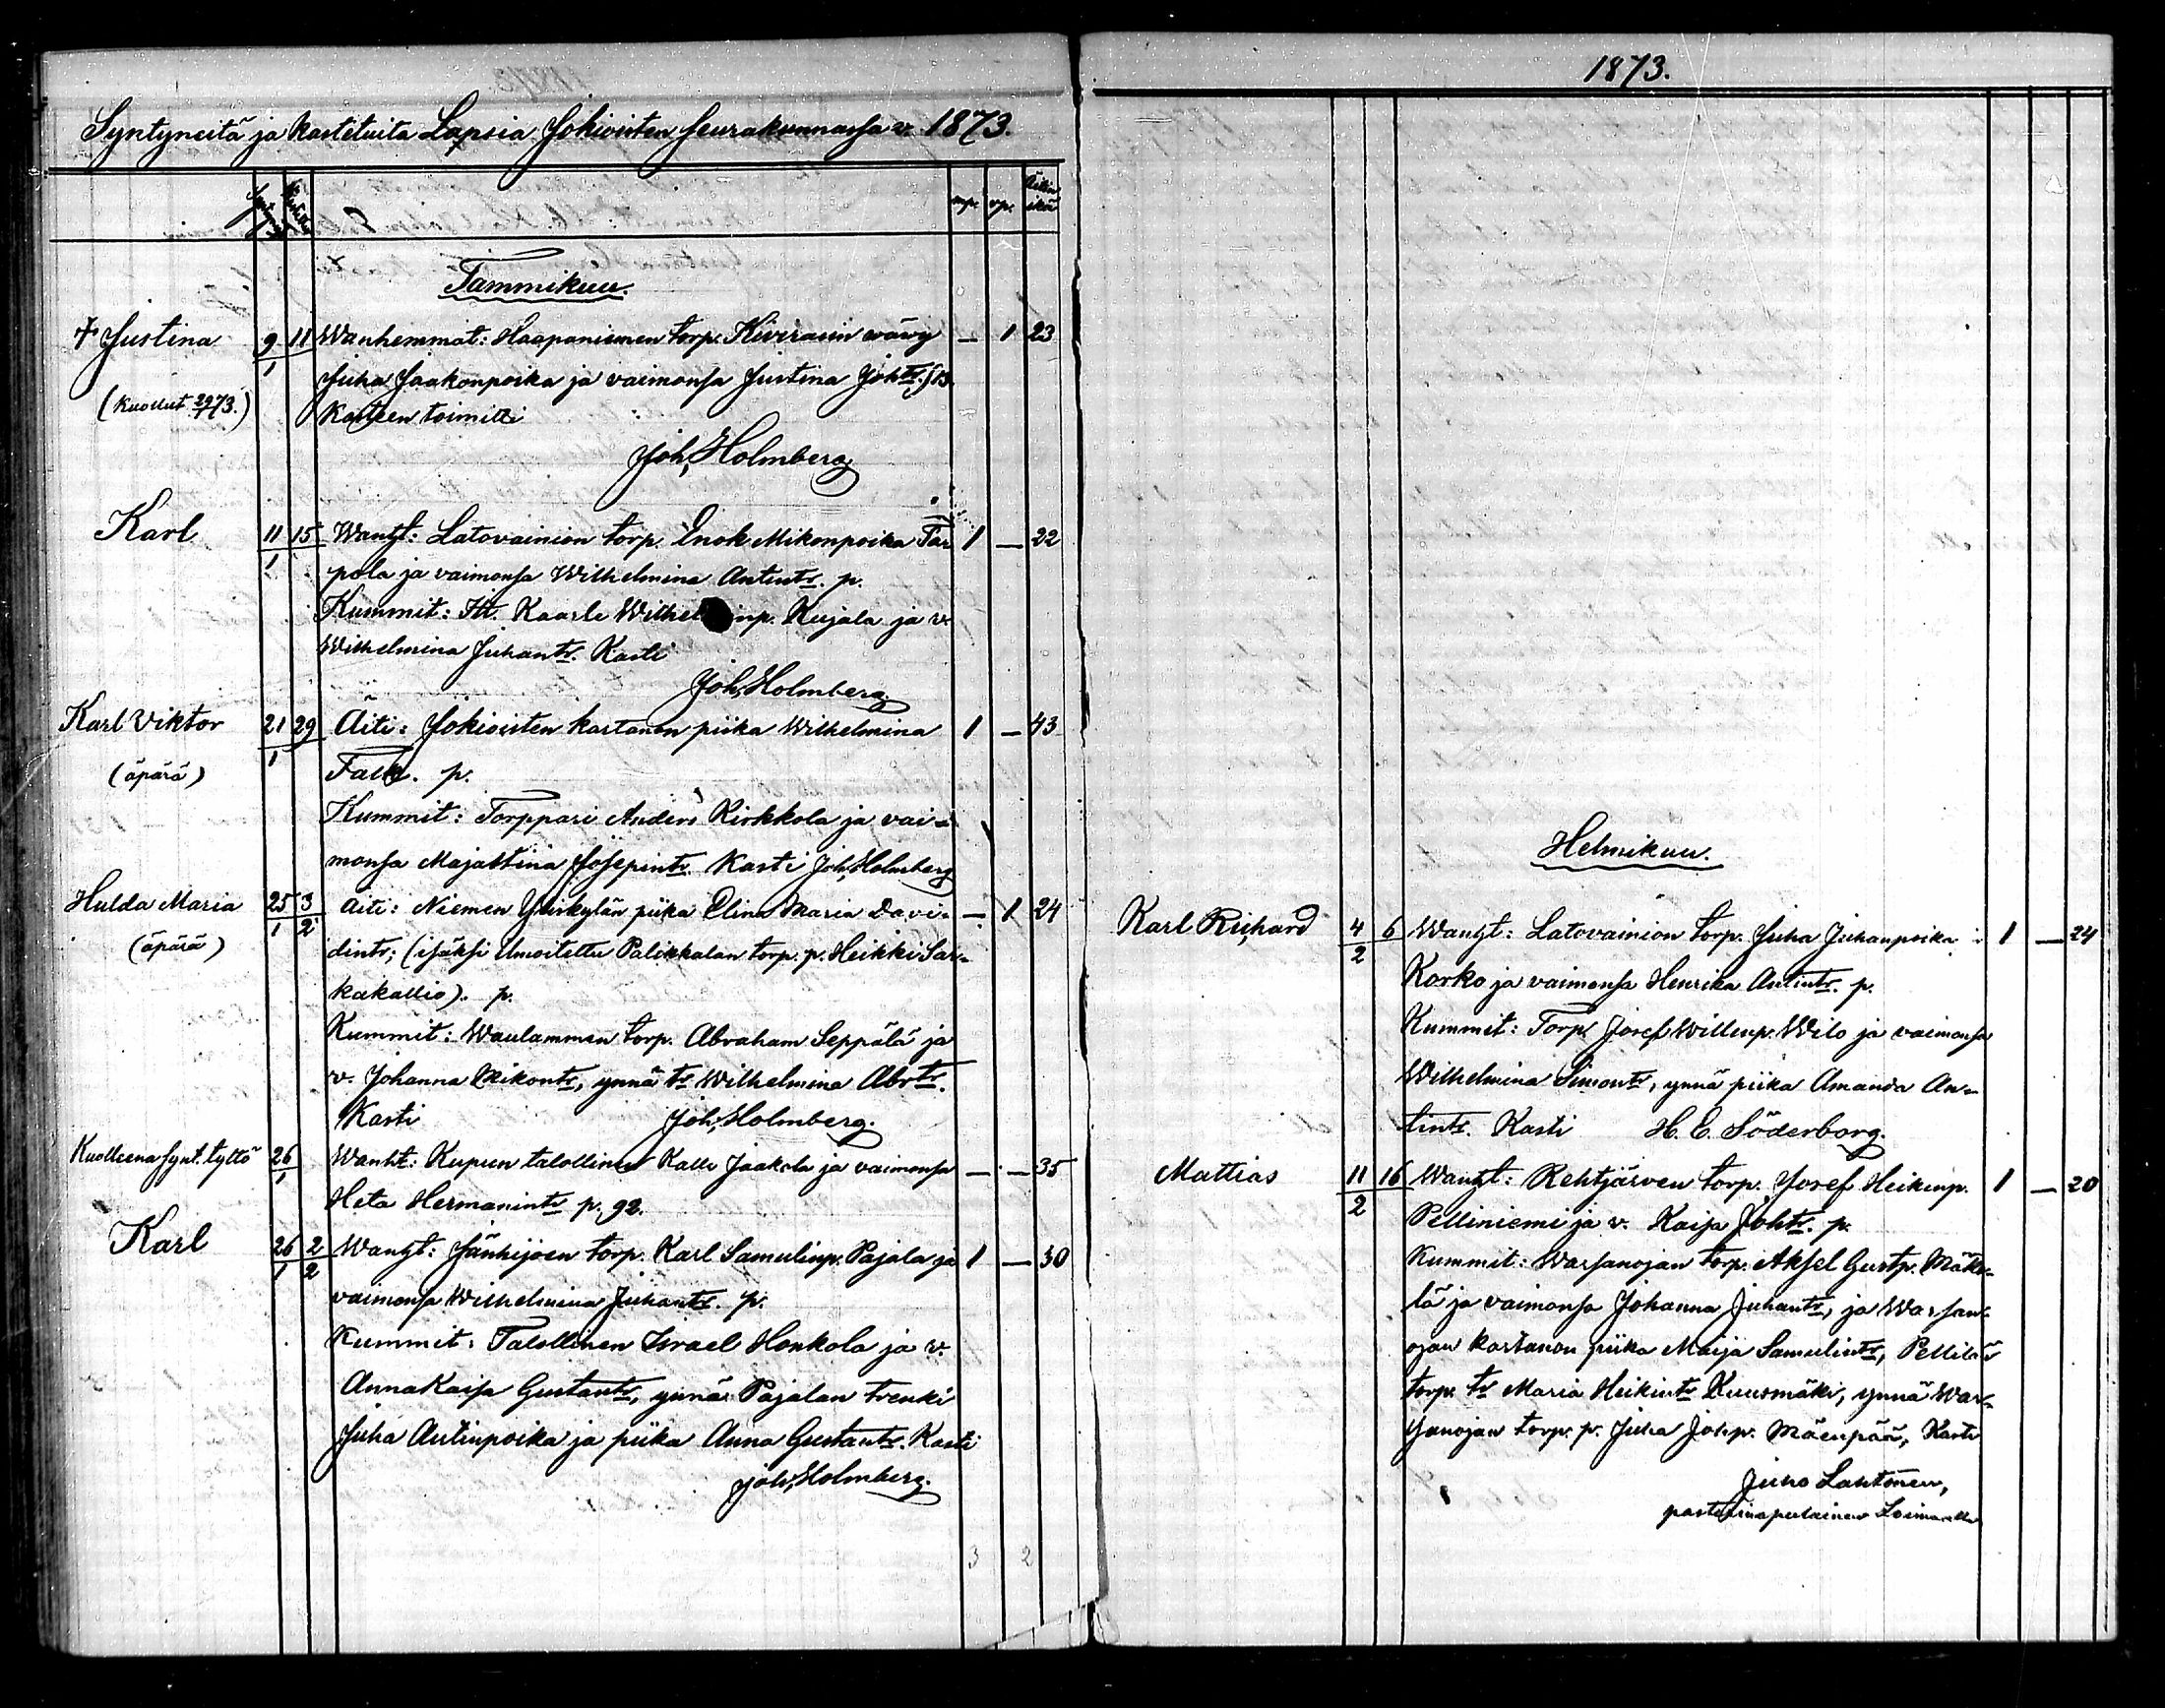 1873.
Syntyneitä ja kastetuita Lapsia Jokioisten seurakunnassa v. 1873.
mp. vp. Äitin ikä
Tammikuu.
† Justina 9/1 11 Wanhemmat: Haapaniemen torp. Kiviraun wäwy — 1 23
Juha Jaakonpoika ja vaimonsa Justina Johtr.
(kuollut 73.) Kasteen toimitti
Joh. Holmberg
Karl 11/1 15 Wanht: Latovainion torp. Enok Mikonpoika Tar 1 — 22
pola ja vaimonsa Wilhelmina Antintr. p.
Kummit: Kaarle Wilhel np. Kujala ja v.
Wilhelmina Juhantr. Kasti
Joh. Holmberg
Karl Viktor 21/1 29 Äiti: Jokioisten kartanon piika Wilhelmina 1 — 43
(äpärä) Falk. p.
Kummit: Torppari Anders Kirkkola ja vai-
monsa Majastina Josepintr. Kasti Joh. Holmberg
Hulda Maria 25/1 3/2 Äiti: Niemen Yliskylän piika Elina Maria Davi- — 1 24
(äpärä) dintr; (isäksi ilmoitettu Palikkalan torp. p. Heikki Sar-
kakallio). p.
Kummit: Waulammen torp. Abraham Seppälä ja
v. Johanna Mikontr, ynnä tr Wilhelmina Abrtr.
Kasti Joh. Holmberg.
Kuolleena synt. tyttö 26/1 Wanht: Kupun talollinen Kalle Jaakola ja vaimonsa — — 35
Heta Hermanintr p. 92.
Karl 26/1 2/2 Wanht: Jänhijoen torp. Karl Samulinp. Pajala ja 1 — 30
vaimonsa Wilhelmina Juhantr. p.
Kummit: Talollinen Israel Honkola ja v.
Anna Kaisa Gustantr, ynnä Pajalan trenki
Juha Antinpoika ja piika Anna Gustantr. Kasti
Joh. Holmberg.
3 2
Helmikuu.
Karl Richard 4/2 6 Wanht: Latovainion torp. Juha Juhanpoika 1 — 24
Korko ja vaimonsa Henrika Antintr. p.
Kummit: Torp. Josef Willenp. Wilo ja vaimonsa
Wilhelmina Simontr, ynnä piika Amanda An-
tintr. Kasti H. E. Söderborg.
Mattias 11/2 16 Wanht: Rehtjärven torp. Josef Heikinp. 1 — 20
Pelliniemi ja v. Kaisa Johtr. p.
Kummit: Warsanojan torp. Aksel Gustp. Mäke-
lä ja vaimonsa Johanna Juhantr, ja Warsan-
ojan kartanon piika Maija Samulintr, Pellilän
torp. tr Maria Heikintr Kuusmäki, ynnä War-
sanojan torp. p. Juha Johp. Mäenpää, Kasti
Juho Lahtonen,